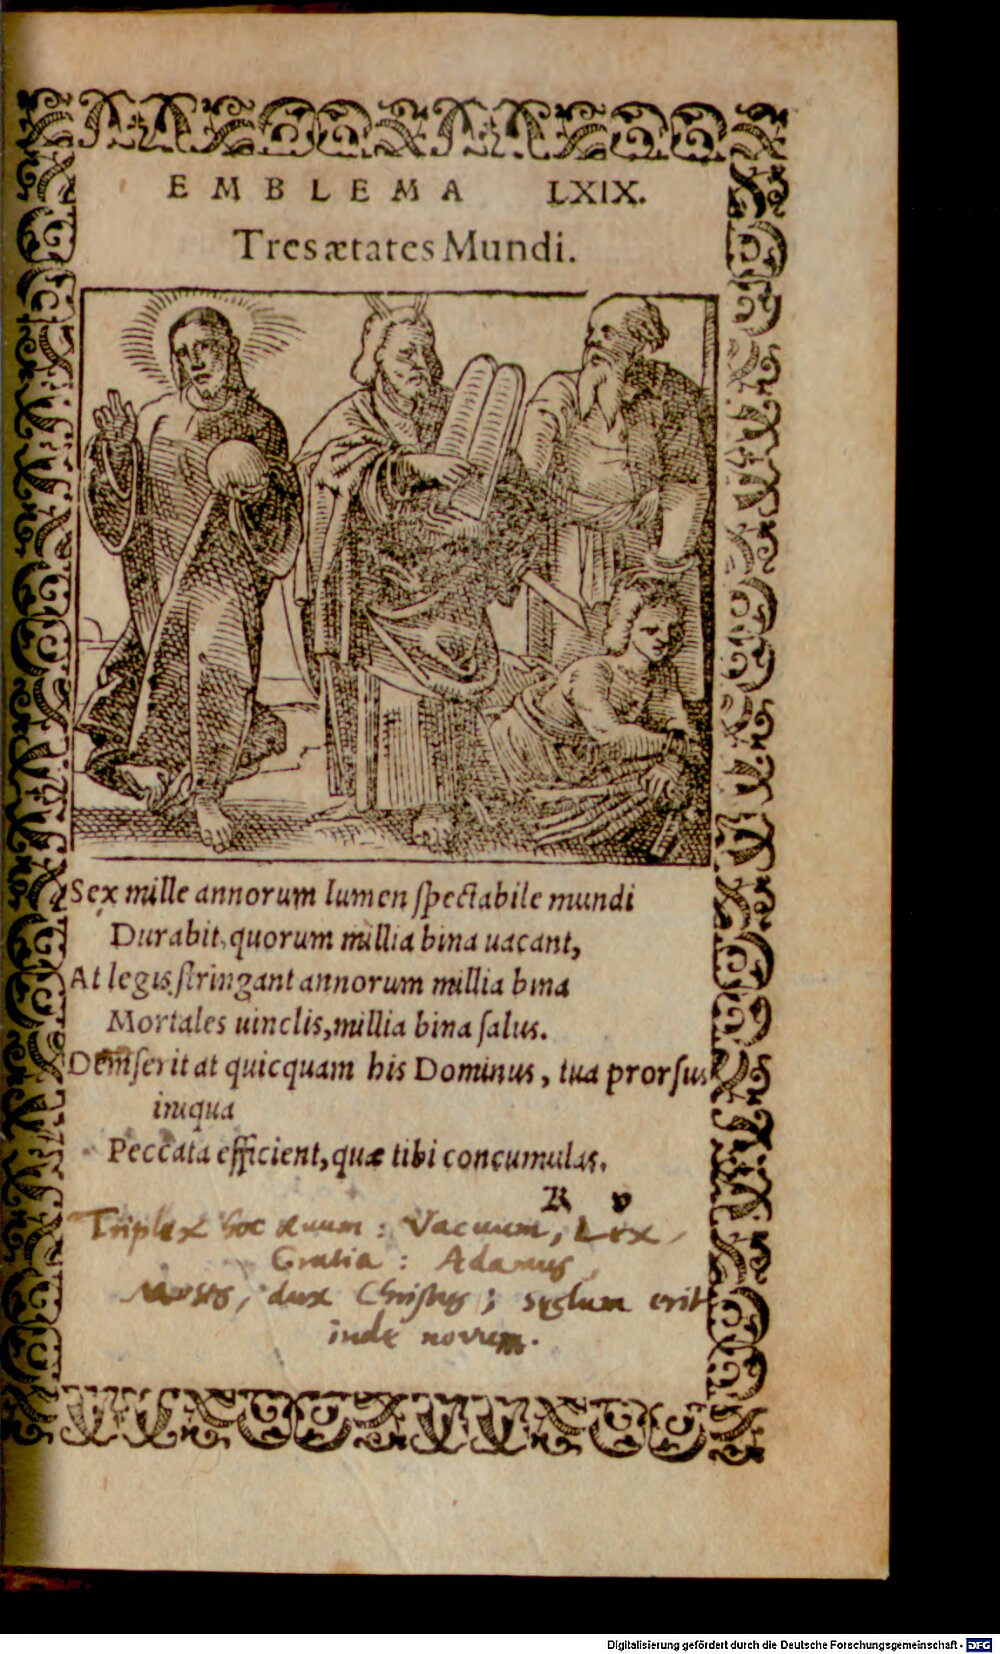 EMBLEMA LXIX.
Tres ætates Mundi.
Sex mille annorum lumen ſpectabile mundi
Durabit, quorum millia bina uacant,
At legis ſtringant annorum millia bina
Mortales uinclis, millia bina ſalus.
Demſerit at quicquam his Dominus, tua prorſus
iniqua
Peccata efficient, quæ tibi concumulas.
R v
Triplex hoc æuum: Vacuum, Lex,
Gratia: Adamus,
Moses, dux Christus; sęclum erit
indę novum.
Digitalisierung gefördert durch die Deutsche Forschungsgemeinschaft - DFG